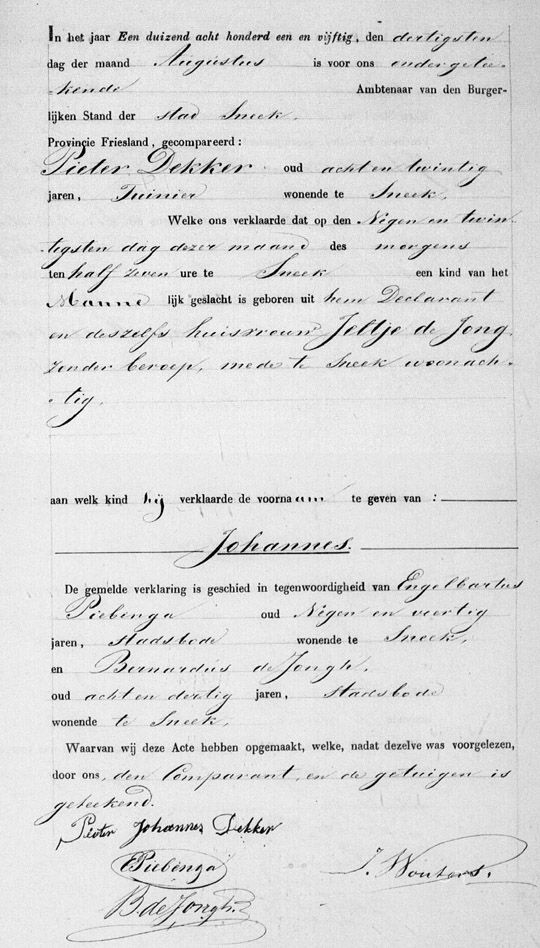 In het jaar Een duizend acht honderd een en vijftig, den dertigsten
dag der maand Augustus is voor ons ondergetee-
-kende Ambtenaar van den Burger-
lijken Stand der stad Sneek.
Provincie Friesland, gecompareerd:
Pieter Dekker oud acht en twintig
jaren, Tuinier wonende te Sneek,
Welke ons verklaarde dat op den Nigen en twin-
-tigsten dag dezer maand des morgens
ten half zeven ure te Sneek een kind van het
Manne lijk geslacht is geboren uit hem Declarant
en deszelfs huisvrouw Jeltje de Jong,
zonder beroep, mede te Sneek woonach-
-tig.
aan welk kind hij verklaarde de voornaam te geven van :
Johannes.
De gemelde verklaring is geschied in tegenwoordigheid van Engelbartus
Piebenga oud Nigen en veertig
jaren, stadsbode wonende te Sneek,
en Bernardus de Jongh,
oud acht en dertig jaren, stadsbode
wonende te Sneek,
Waarvan wij deze Acte hebben opgemaakt, welke, nadat dezelve was voorgelezen,
door ons, den Comparant, en de getuigen is
geteekend.
Pieter Johannes Dekker
EPiebenga
J. Wouters.
B. de Jongh.